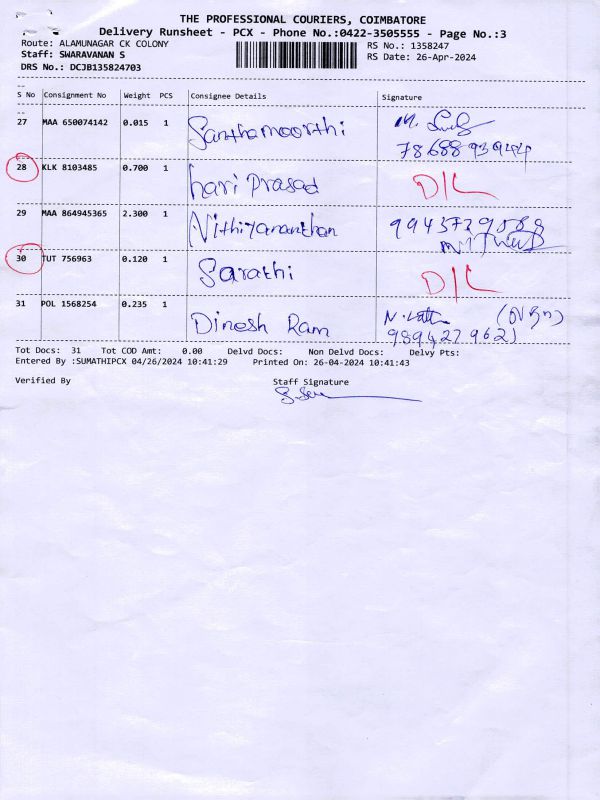 THE PROFESSIONAL COURIERS, COIMBATORE
Delivery Runsheet - PCX - Phone No.:0422-3505555 - Page No.:3
Route: ALAMUNAGAR CK COLONY
RS No.: 1358247
Staff: SWARAVANAN S
RS Date: 26-Apr-2024
DRS No.: DCJB135824703
S No Consignment No Weight PCS Consignee Details Signature
27 MAA 650074142 0.015 1 Santhamoorthi
28 KLK 8103485 0.700 1 hari Prasad D/L
29 MAA 864945365 2.300 1 Nithiyananthan
30 TUT 756963 0.120 1 Sarathi D/L
31 POL 1568254 0.235 1 Dinesh Ram
9894279621
Tot Docs: 31 Tot COD Amt: 0.00 Delvd Docs: Non Delvd Docs: Delvy Pts:
Entered By :SUMATHIPCX 04/26/2024 10:41:29 Printed On: 26-04-2024 10:41:43
Verified By Staff Signature